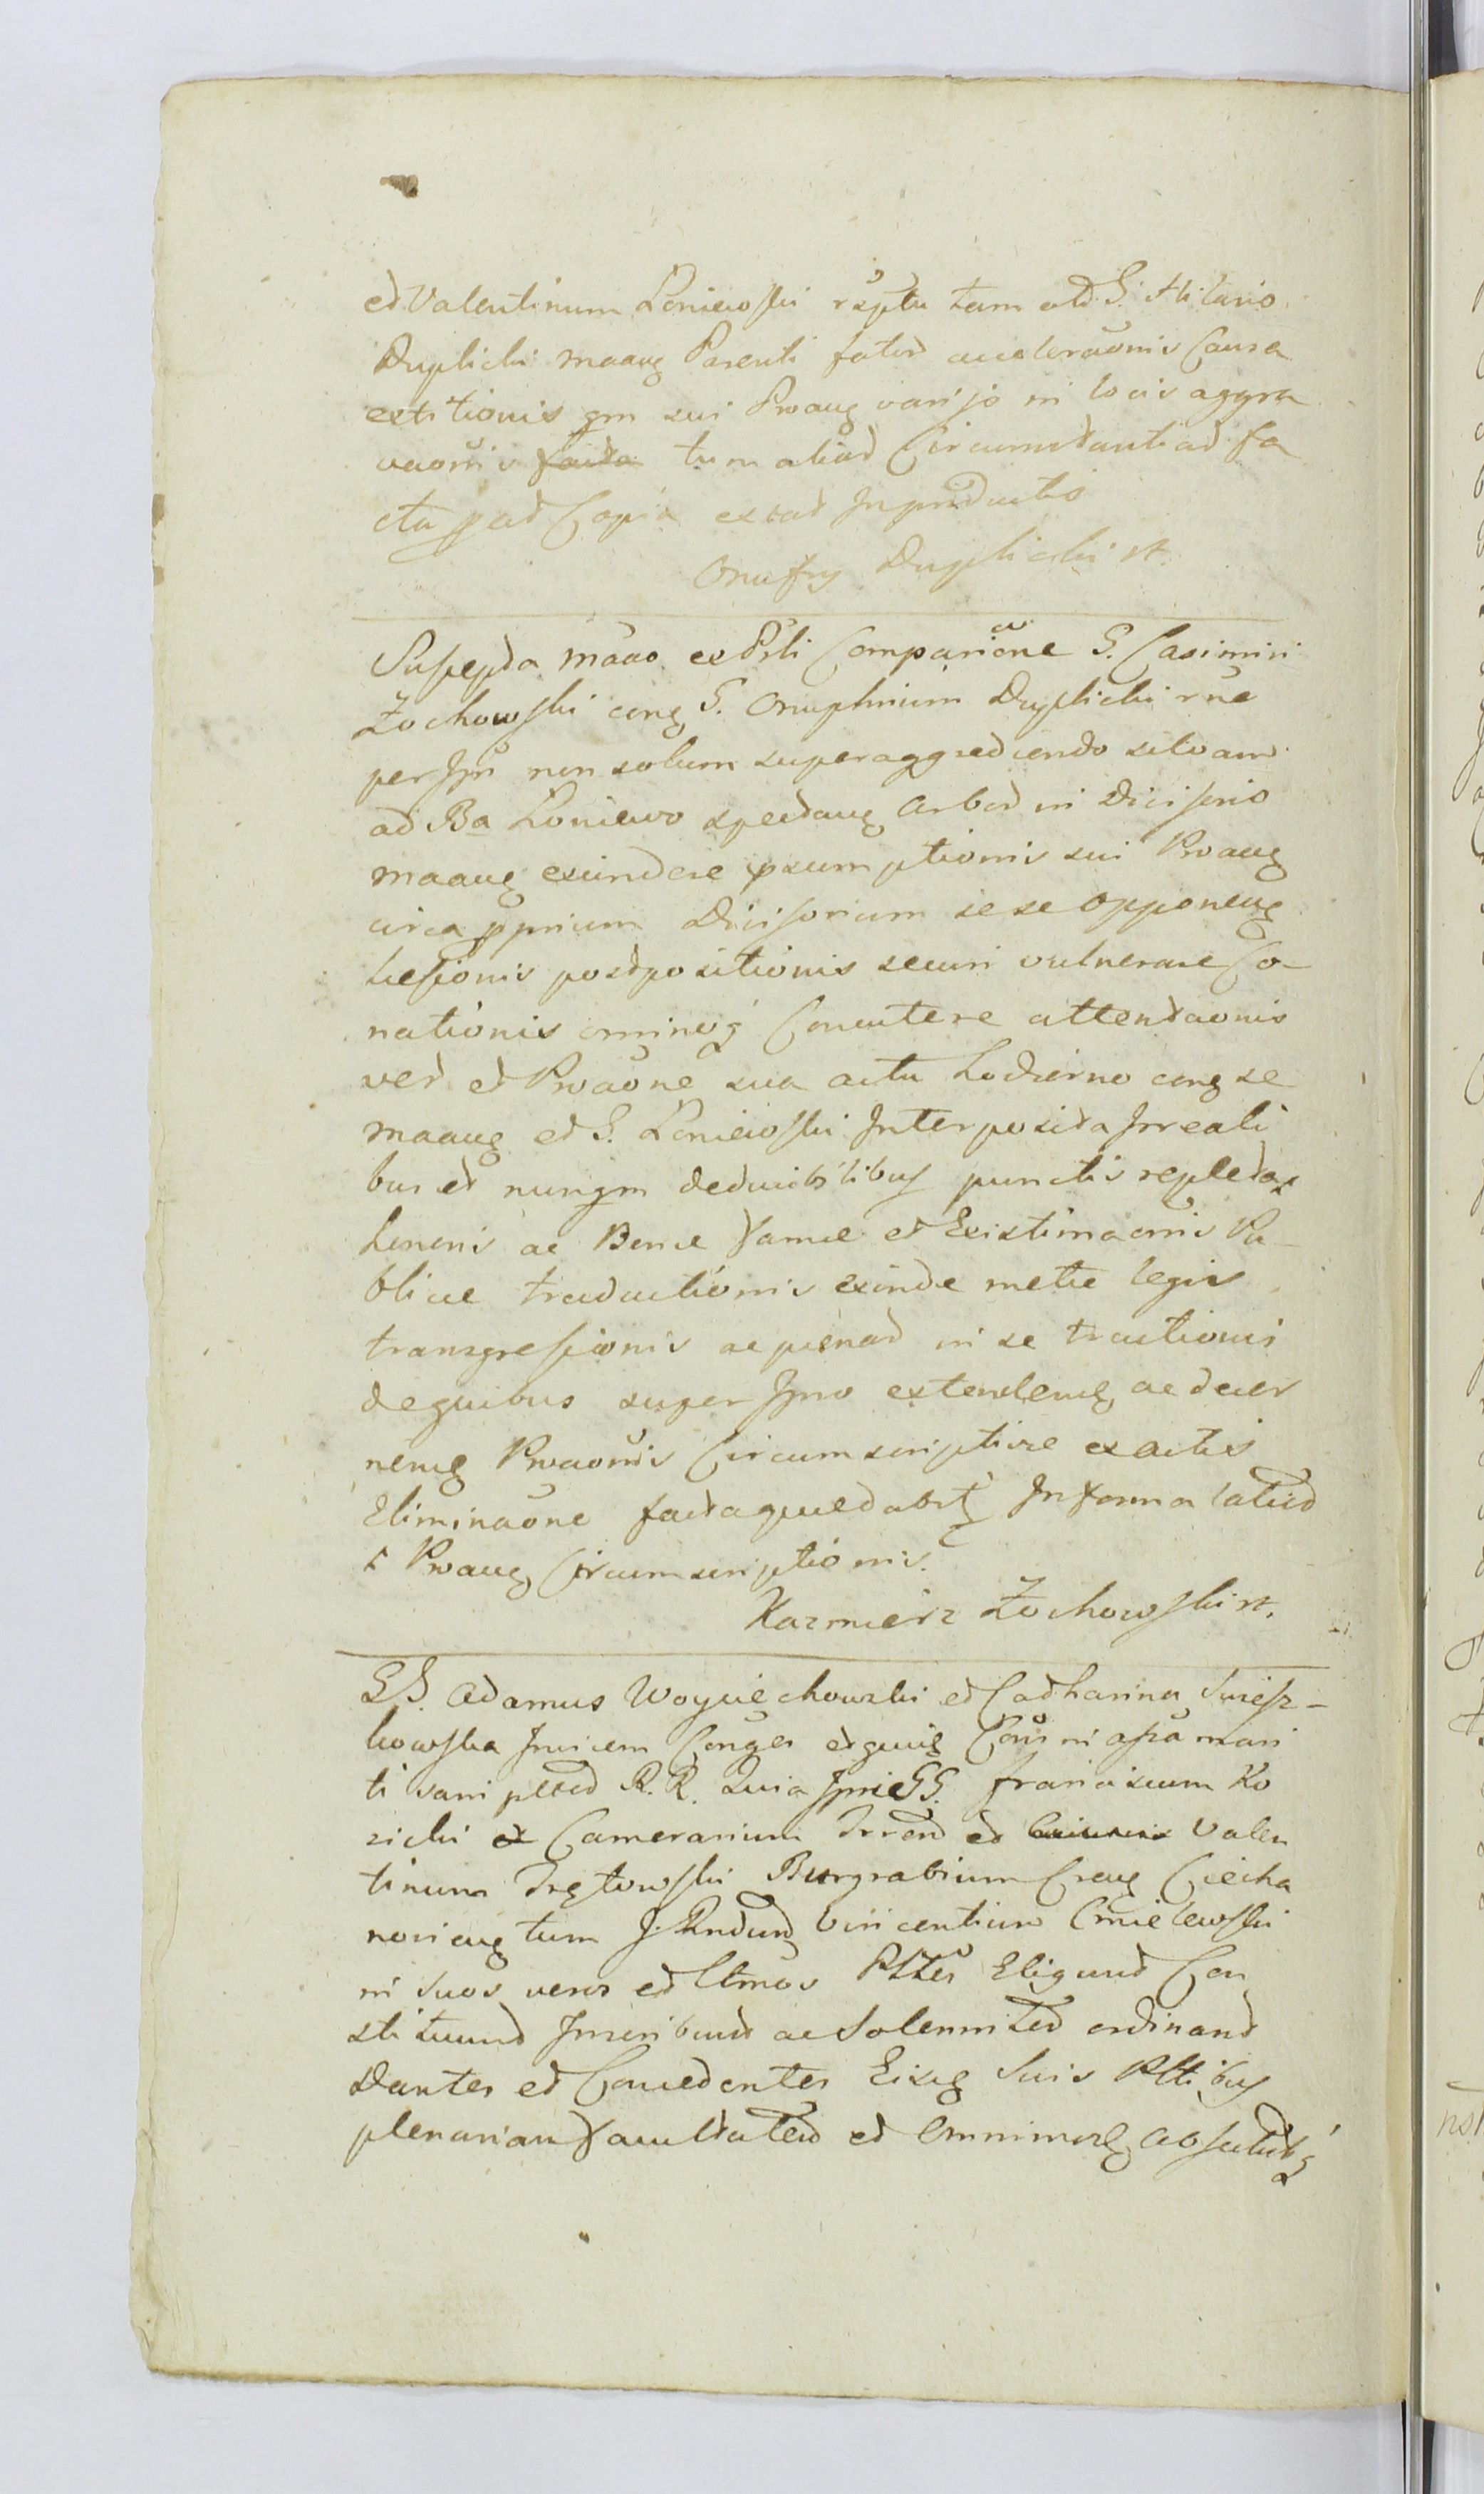 et Valentinum Loniewski rsptu tam olid G. Hilario
Duplicki maaug Parenti fatod acceleraonis Causa
extitionis qm sui Proaug varijs in locis aggra
vaonis tum aliad Circumstantiad fa
cta pad Copia extat Inproductis
Onufry Duplicki st.
Suscepta maao ex Psti Comparicione G. Casimiri
Zochowski cong G. Onuphrium Duplicki rne
per Ipn non solum superaggrediendo silvam
ad Ba Loniewo spectaug Arbod in Divisorio
maaug excindere psumptionis sui Proaug
circa pprium Divisorium sese opponeug
lesionis postpositionis securi vulnerare Co-
nationis omineq Concutere attentaonis
ved et Proaone sua actu hodierno cong se
maaug et G. Loniewski Interposita Irreali
bus et nunqm deducibilibus punctis repleta
honoris ac Bone Fame et Existimaonis Pu-
blice traductionis exinde mette legis
transgressionis ac penad in se tractionis
dequibus super Ipso extendeng ac decer
neng Proaonis Circumscriptive exactis
Eliminaone factaquedabtq Informa latiod
t Proaug Circumscriptionis.
Kazmierz Zochowski st.
GG. Adamus Woyciechowski et Catharina Swiesz-
kowska Invicem Conges etquid Cons in assa mari
ti sani ptted R.R. Quia Ipsi GG. Franciscum Ko
zicki Camerarium Trrend et Valen
tinum Trętowski Burgrabium Creug Ciecha
novieug tum J. Rndund Vincentium Cmielewski
in suos veros et ltmos Plltes Eligund Con
stituund Inscribund ac Solennited ordinand
Dantes et Concedentes Eisug Suis Pltibus
plenariam Facultated et Omnimod Absolutd